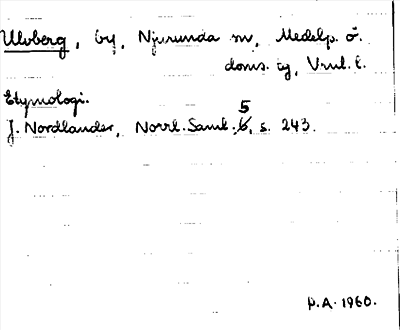 Ulvberg, by, Njurunda sn, Medelp. ö.
doms. tg, Vnl. l.
Etymologi.
J. Nordlander, Norrl. Saml. 5, s. 243.
P.A. 1960.